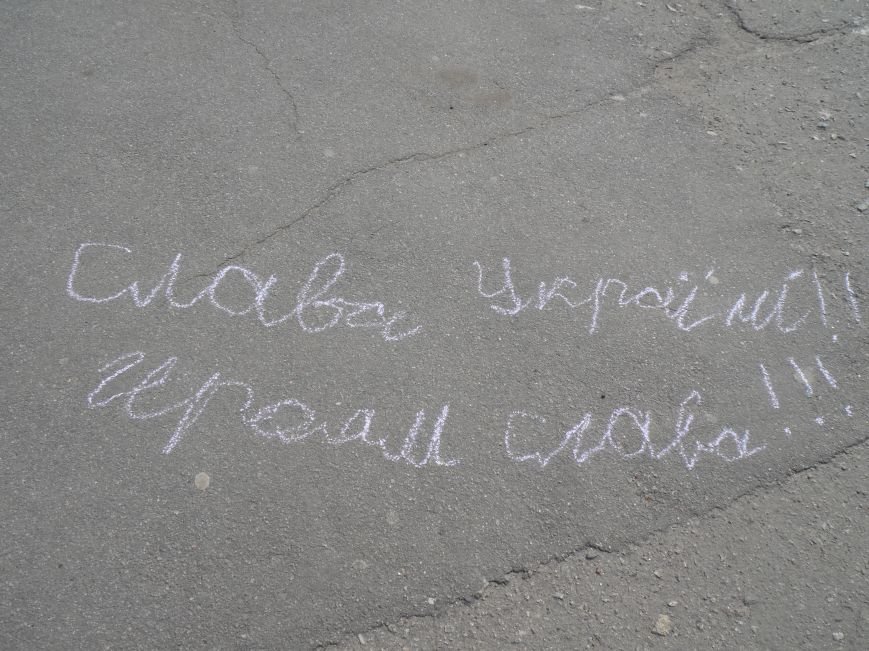 Слава Україні!!
Героям слава!!!